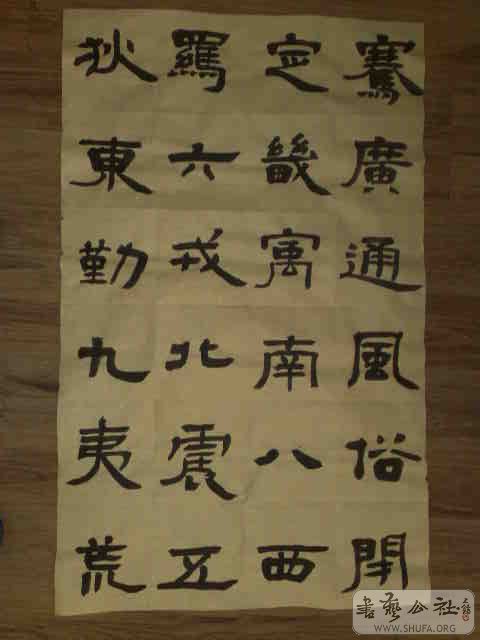 騫廣通風俗開
定畿寓南八西
羈六戎北震五
狄東勤九夷荒
書藝公社
WWW.SHUFA.ORG